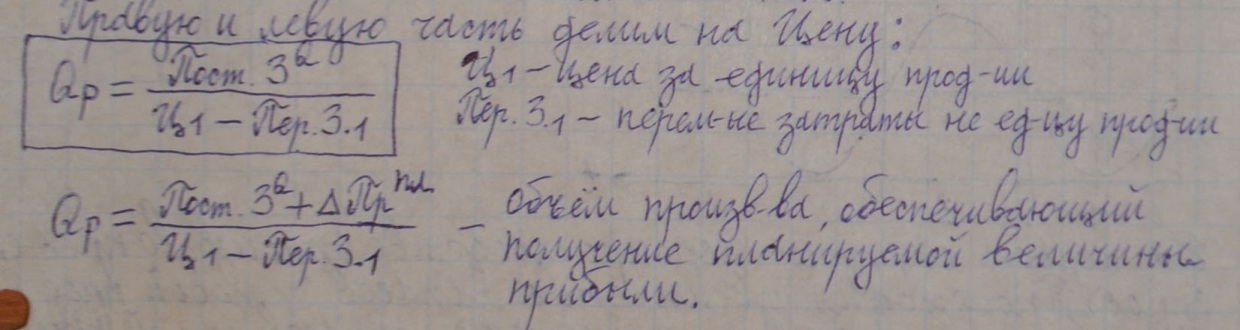 Правую и левую часть делим на Цену:
Qр = Пост. З^Q / (Ц1 – Пер. З.1)
Ц1 – цена за единицу прод-ии
Пер. З.1 – перем-ые затраты не ед-цу прод-ии
Qр = (Пост. З^Q + Δ Пр^пл) / (Ц1 – Пер. З.1) – объём произв-ва, обеспечивающий
получение планируемой величины
прибыли.